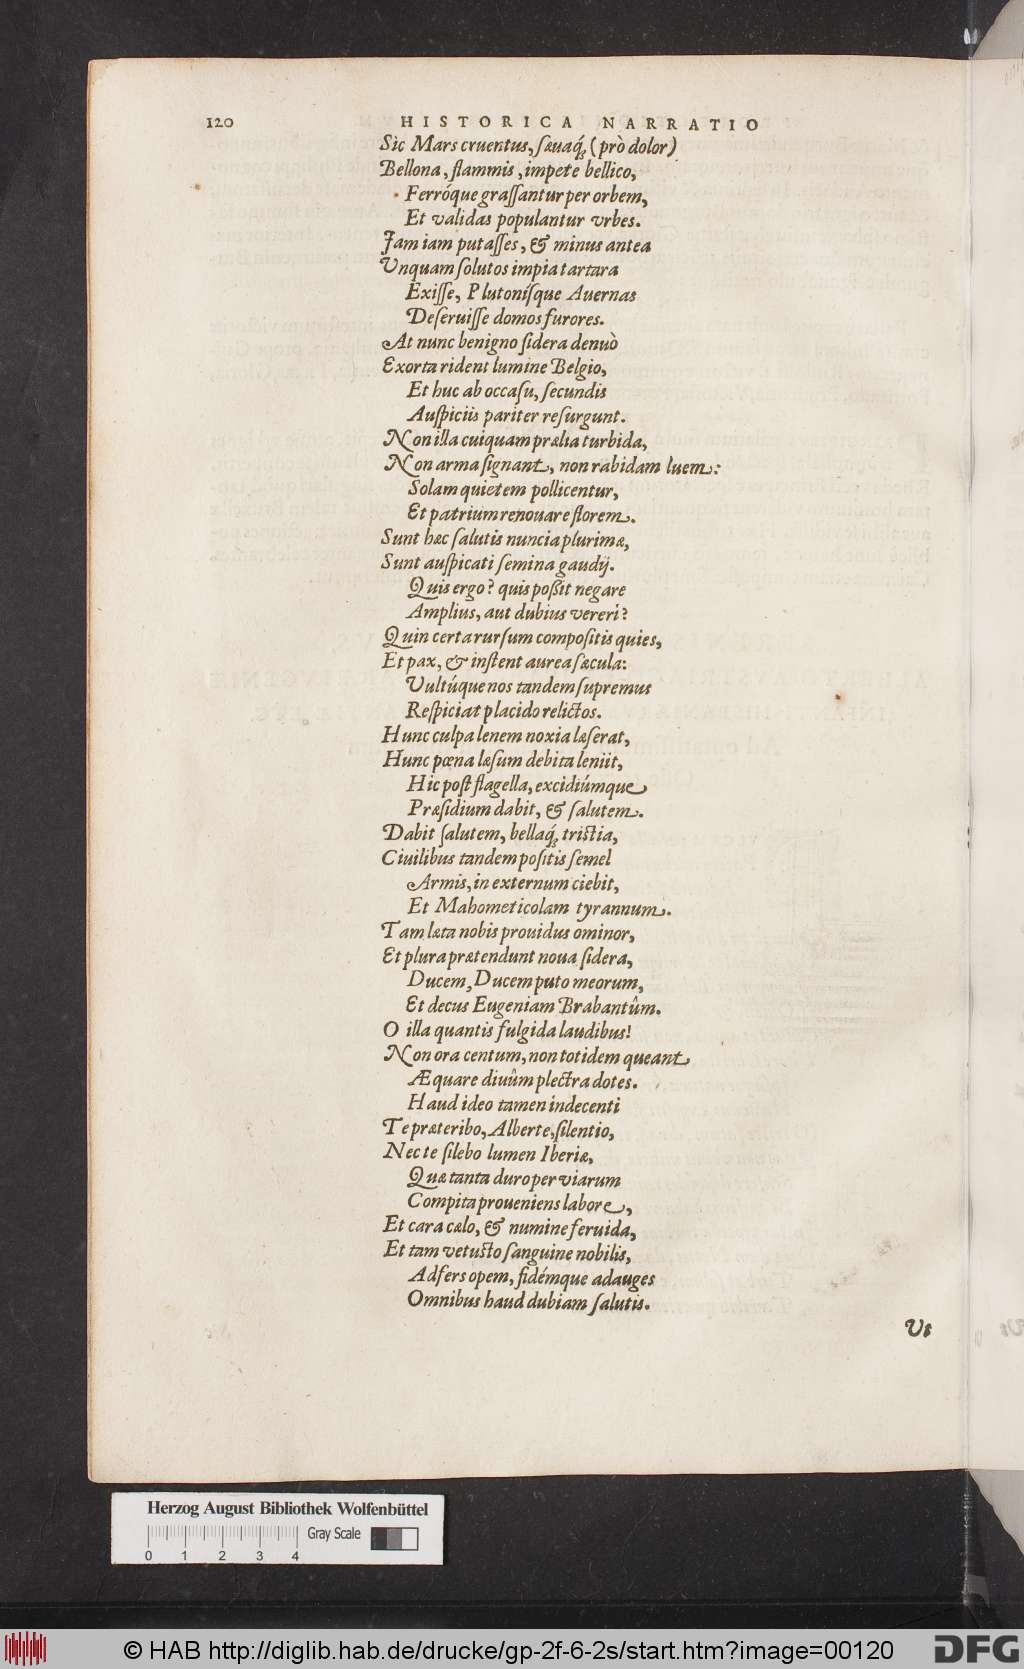 120 HISTORICA NARRATIO
Sic Mars cruentus, sæuaq́; (prò dolor)
Bellona, flammis, impete bellico,
Ferróque graſſantur per orbem,
Et validas populantur vrbes.
Jam iam putaſſes, & minus antea
Vnquam ſolutos impia tartara
Exiſſe, Plutoníſque Auernas
Deſeruiſſe domos furores.
At nunc benigno ſidera denuò
Exorta rident lumine Belgio,
Et huc ab occaſu, ſecundis
Auſpiciis pariter reſurgunt.
Non illa cuiquam prælia turbida,
Non arma ſignant, non rabidam luem:
Solam quietem pollicentur,
Et patrium renouare florem.
Sunt hæc ſalutis nuncia plurimæ,
Sunt auſpicati ſemina gaudij.
Quis ergo? quis poßit negare
Amplius, aut dubius vereri?
Quin certa rurſum compoſitis quies,
Et pax, & inſtent aurea ſæcula:
Vultúque nos tandem ſupremus
Reſpiciat placido relictos.
Hunc culpa lenem noxia læſerat,
Hunc pœna læſum debita leniit,
Hic poſt flagella, excidiúmque
Præſidium dabit, & ſalutem.
Dabit ſalutem, bellaq́; triſtia,
Ciuilibus tandem poſitis ſemel
Armis, in externum ciebit,
Et Mahometicolam tyrannum.
Tam læta nobis prouidus ominor,
Et plura prætendunt noua ſidera,
Ducem, Ducem puto meorum,
Et decus Eugeniam Brabantûm.
O illa quantis fulgida laudibus!
Non ora centum, non totidem queant
Æquare diuûm plectra dotes.
Haud ideo tamen indecenti
Te præteribo, Alberte, ſilentio,
Nec te ſilebo lumen Iberiæ,
Quæ tanta duro per viarum
Compita proueniens labore,
Et cara cælo, & numine feruida,
Et tam vetuſto ſanguine nobilis,
Adfers opem, fidémque adauges
Omnibus haud dubiam ſalutis.
Vt
Herzog August Bibliothek Wolfenbüttel
Gray Scale
0 1 2 3 4
© HAB http://diglib.hab.de/drucke/gp-2f-6-2s/start.htm?image=00120
DFG